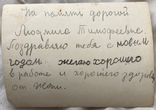 На память дорогой
Людмила Тимофеевне.
Поздравляю тебя с новым
годом желаю хорошо
в работе и хорошего здоровья
от